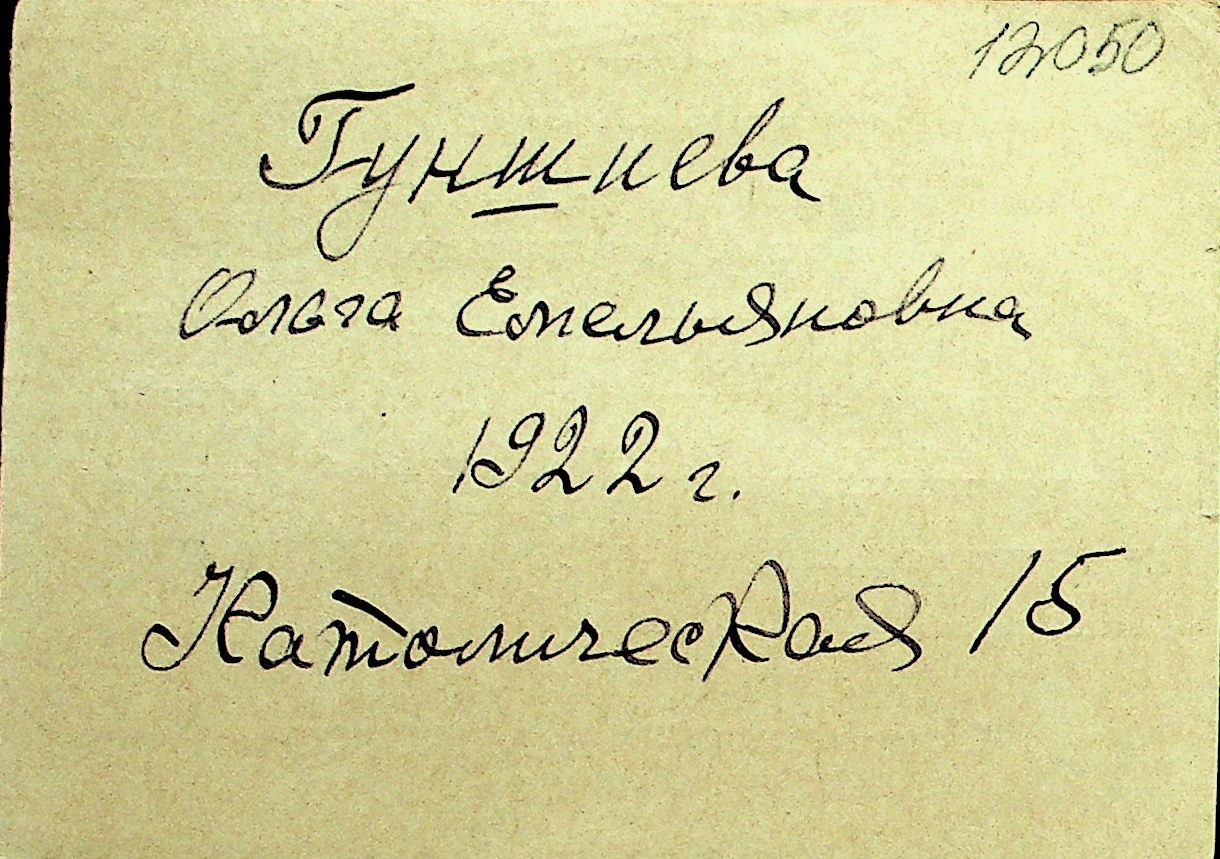 12050
Гуншиева
Ольга Емельяновна
1922 г.
Католическая 15